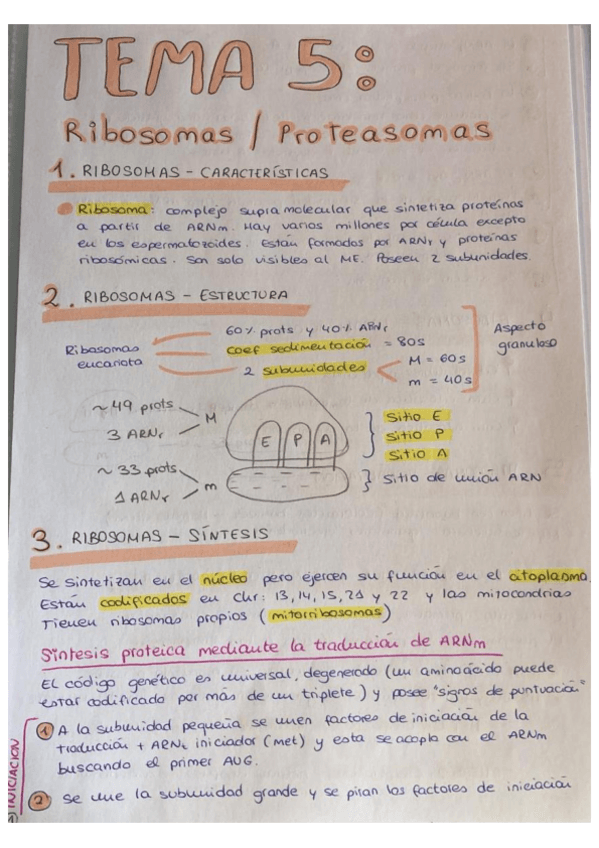 TEMA 5:
Ribosomas / Proteasomas
1. RIBOSOMAS - CARACTERÍSTICAS
Ribosoma: complejo supramolecular que sintetiza proteínas
a partir de ARNm. Hay varios millones por célula excepto
en los espermatozoides. Están formados por ARNr y proteínas
ribosómicas. Son solo visibles al ME. Poseen 2 subunidades.
2. RIBOSOMAS - ESTRUCTURA
Ribosomas eucariota
60% prots y 40% ARNr
coef sedimentación = 80s
2 subunidades
M = 60s
m = 40s
Aspecto granuloso
~49 prots
3 ARNr
M
~33 prots
1 ARNr
m
E P A
Sitio E
Sitio P
Sitio A
Sitio de unión ARN
3. RIBOSOMAS - SÍNTESIS
Se sintetizan en el núcleo pero ejercen su función en el citoplasma.
Están codificados en chr: 13, 14, 15, 21 y 22 y las mitocondrias
tienen ribosomas propios (mitorribosomas)
Síntesis proteica mediante la traducción de ARNm
El código genético es universal, degenerado (un aminoácido puede
estar codificado por más de un triplete) y posee "signos de puntuación"
INICIACIÓN
1 A la subunidad pequeña se unen factores de iniciación de la
traducción + ARNt iniciador (met) y esta se acopla con el ARNm
buscando el primer AUG.
2 Se une la subunidad grande y se piran los factores de iniciación